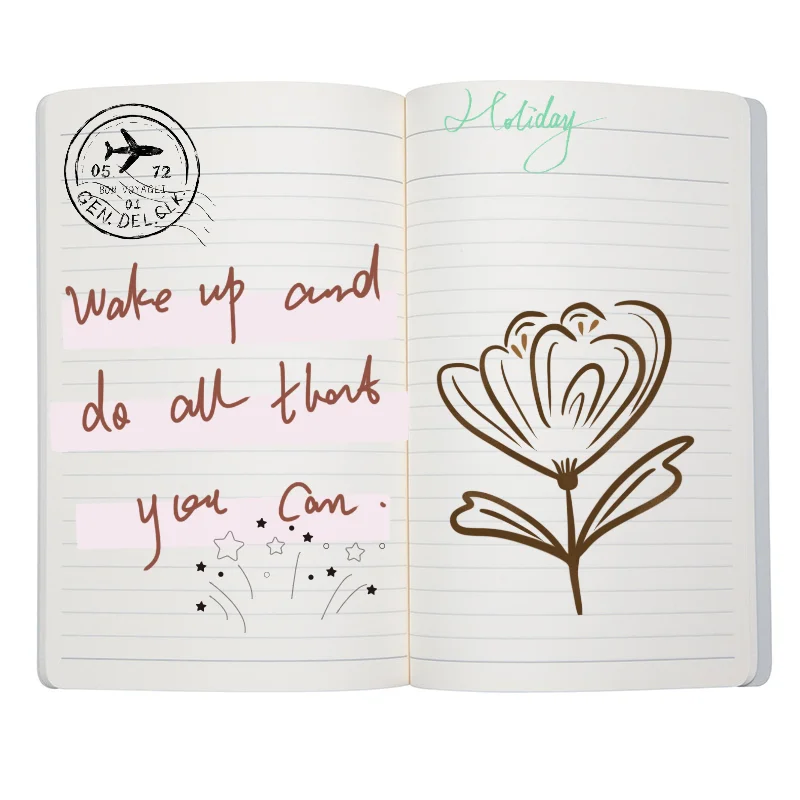 05 72
BON VOYAGE!
01
GEN. DEL. CLK.
Wake up and
do all that
you can.
Holiday